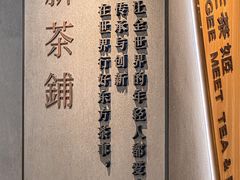 新茶鋪
让全世界的年轻人都爱
传承与创新
在世界行好东方茶事
茶姬
GEE MEET TEA &